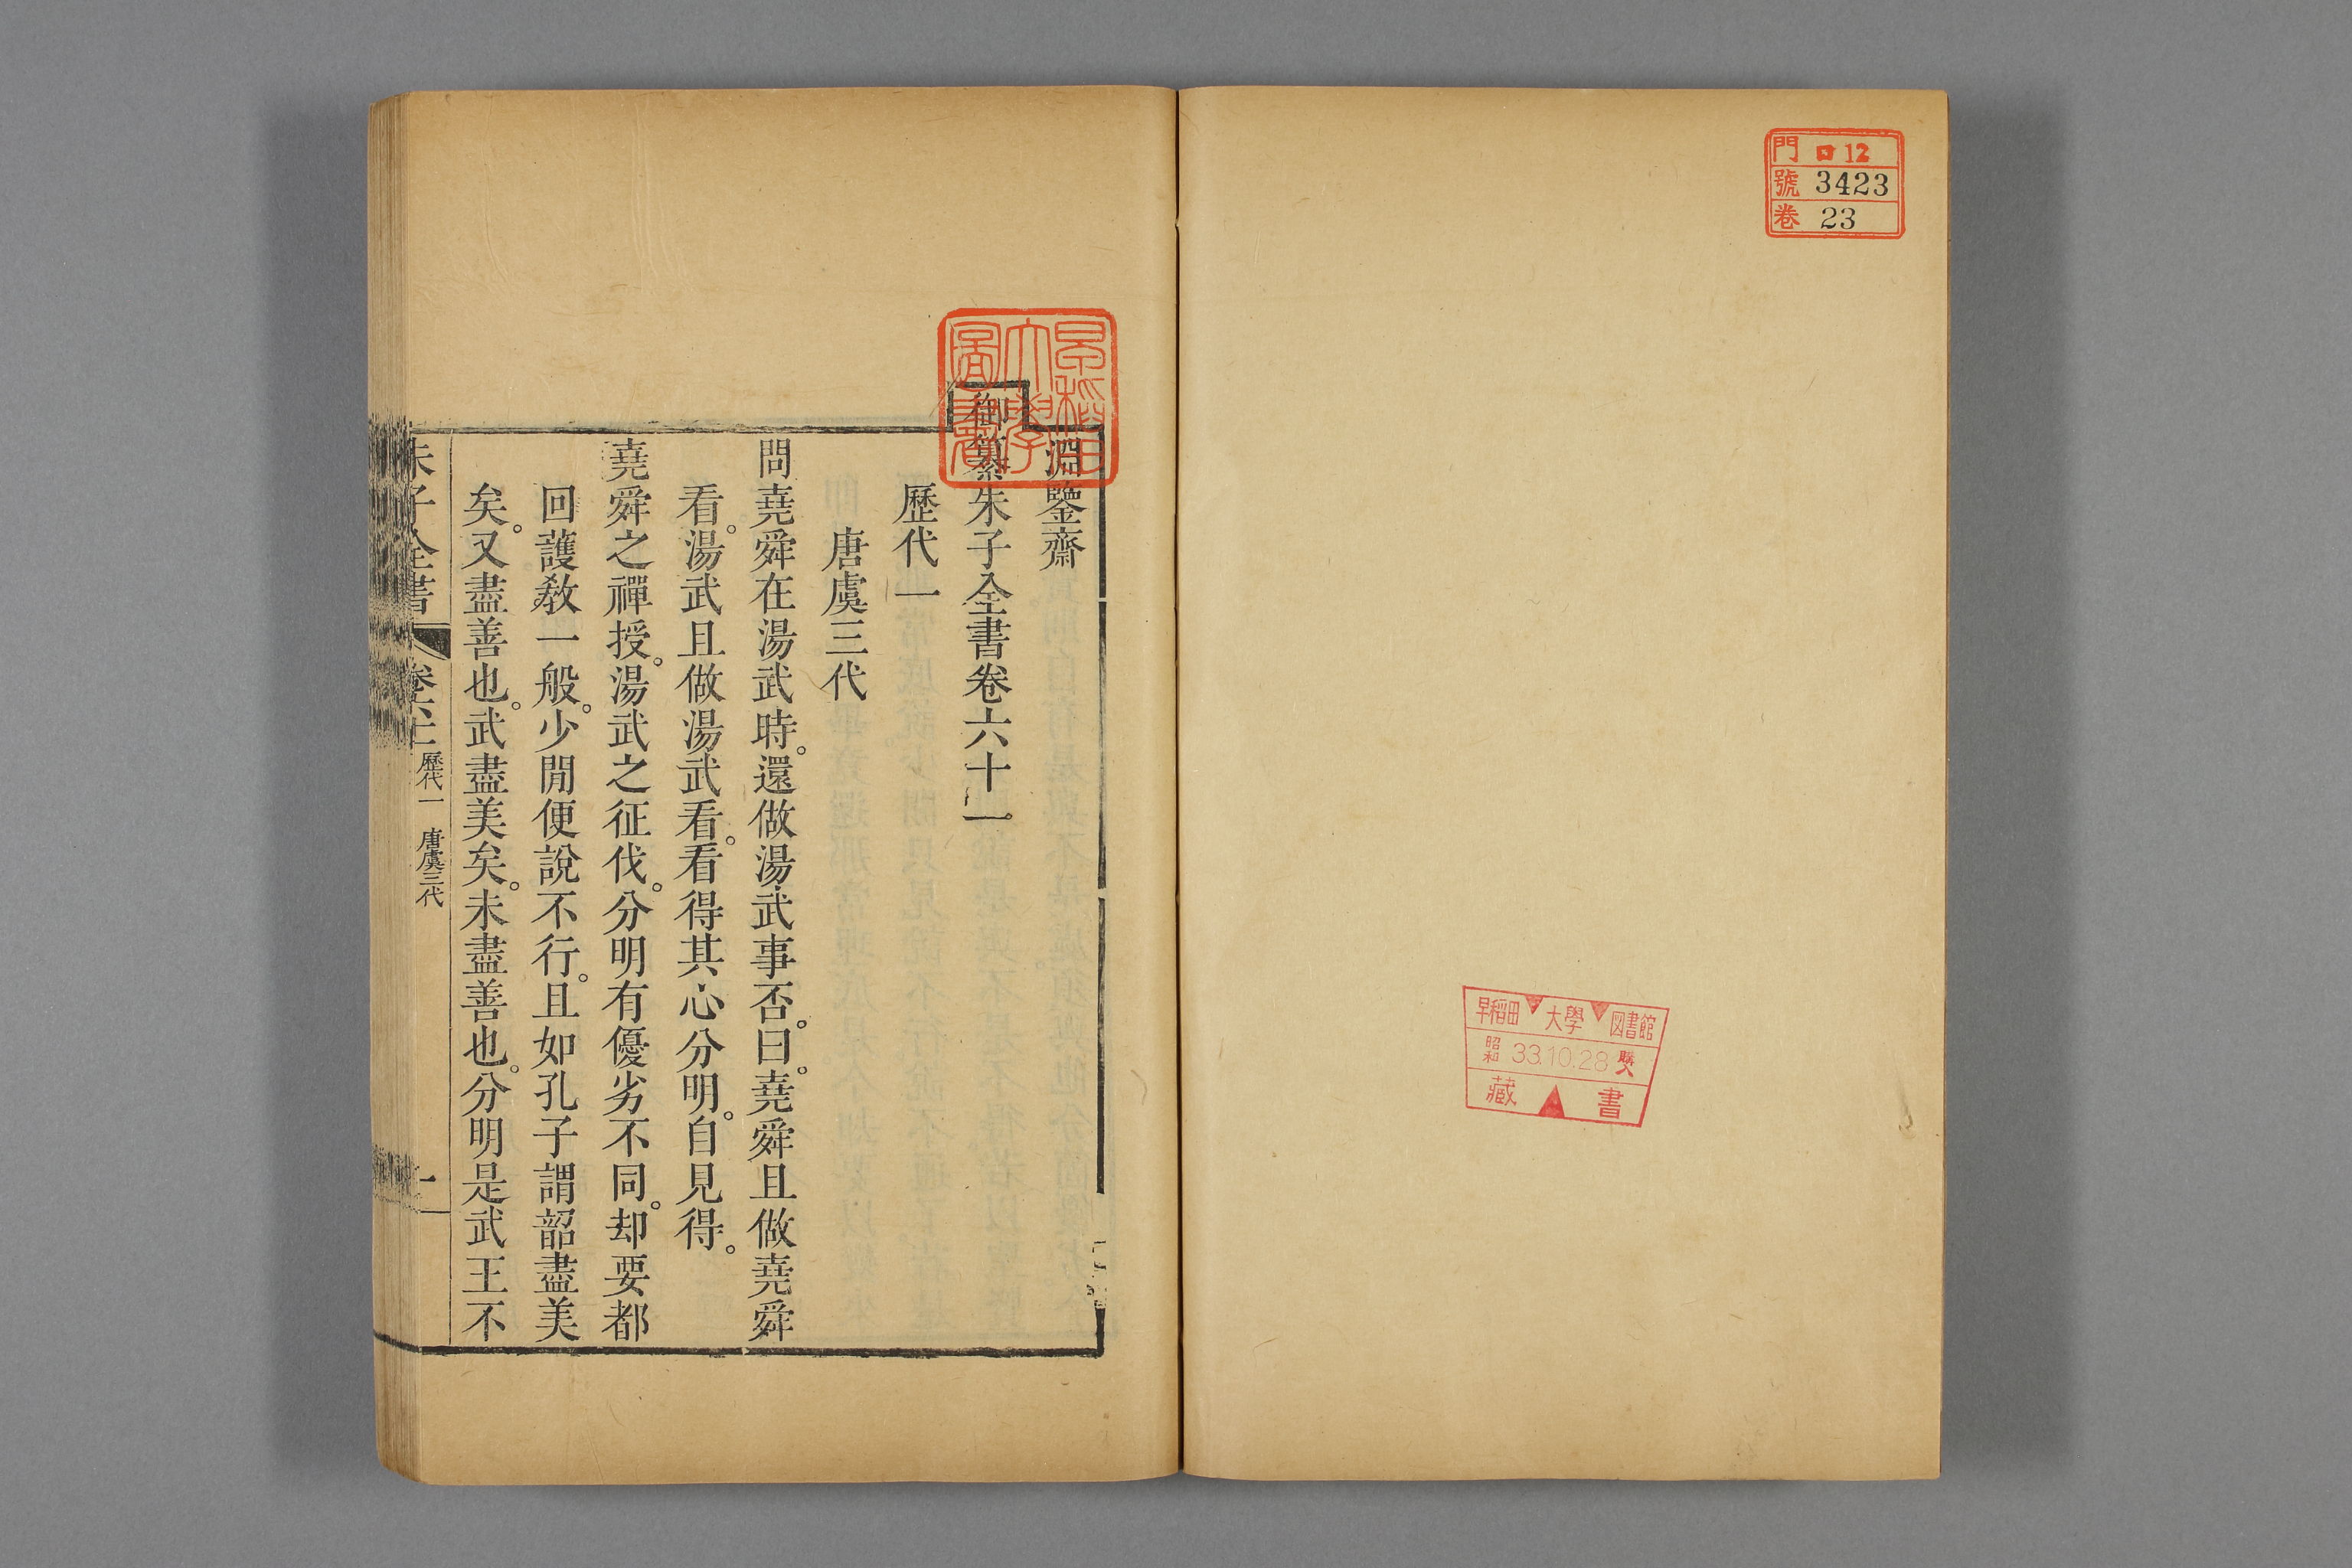 門 ロ12
號 3423
卷 23
早稻田大學図書館
昭和 33.10.28 購
藏書
早稻田大學圖書
淵鑒齋
御纂朱子全書卷六十一
歷代一
唐虞三代
問堯舜在湯武時。還做湯武事否。曰。堯舜且做堯舜
看。湯武且做湯武看。看得其心分明。自見得。
堯舜之禪授。湯武之征伐。分明有優劣不同。却要都
回護教一般。少閒便說不行。且如孔子謂韶盡美
矣。又盡善也。武盡美矣。未盡善也。分明是武王不
朱子全書 卷六十一 歷代一 唐虞三代 一